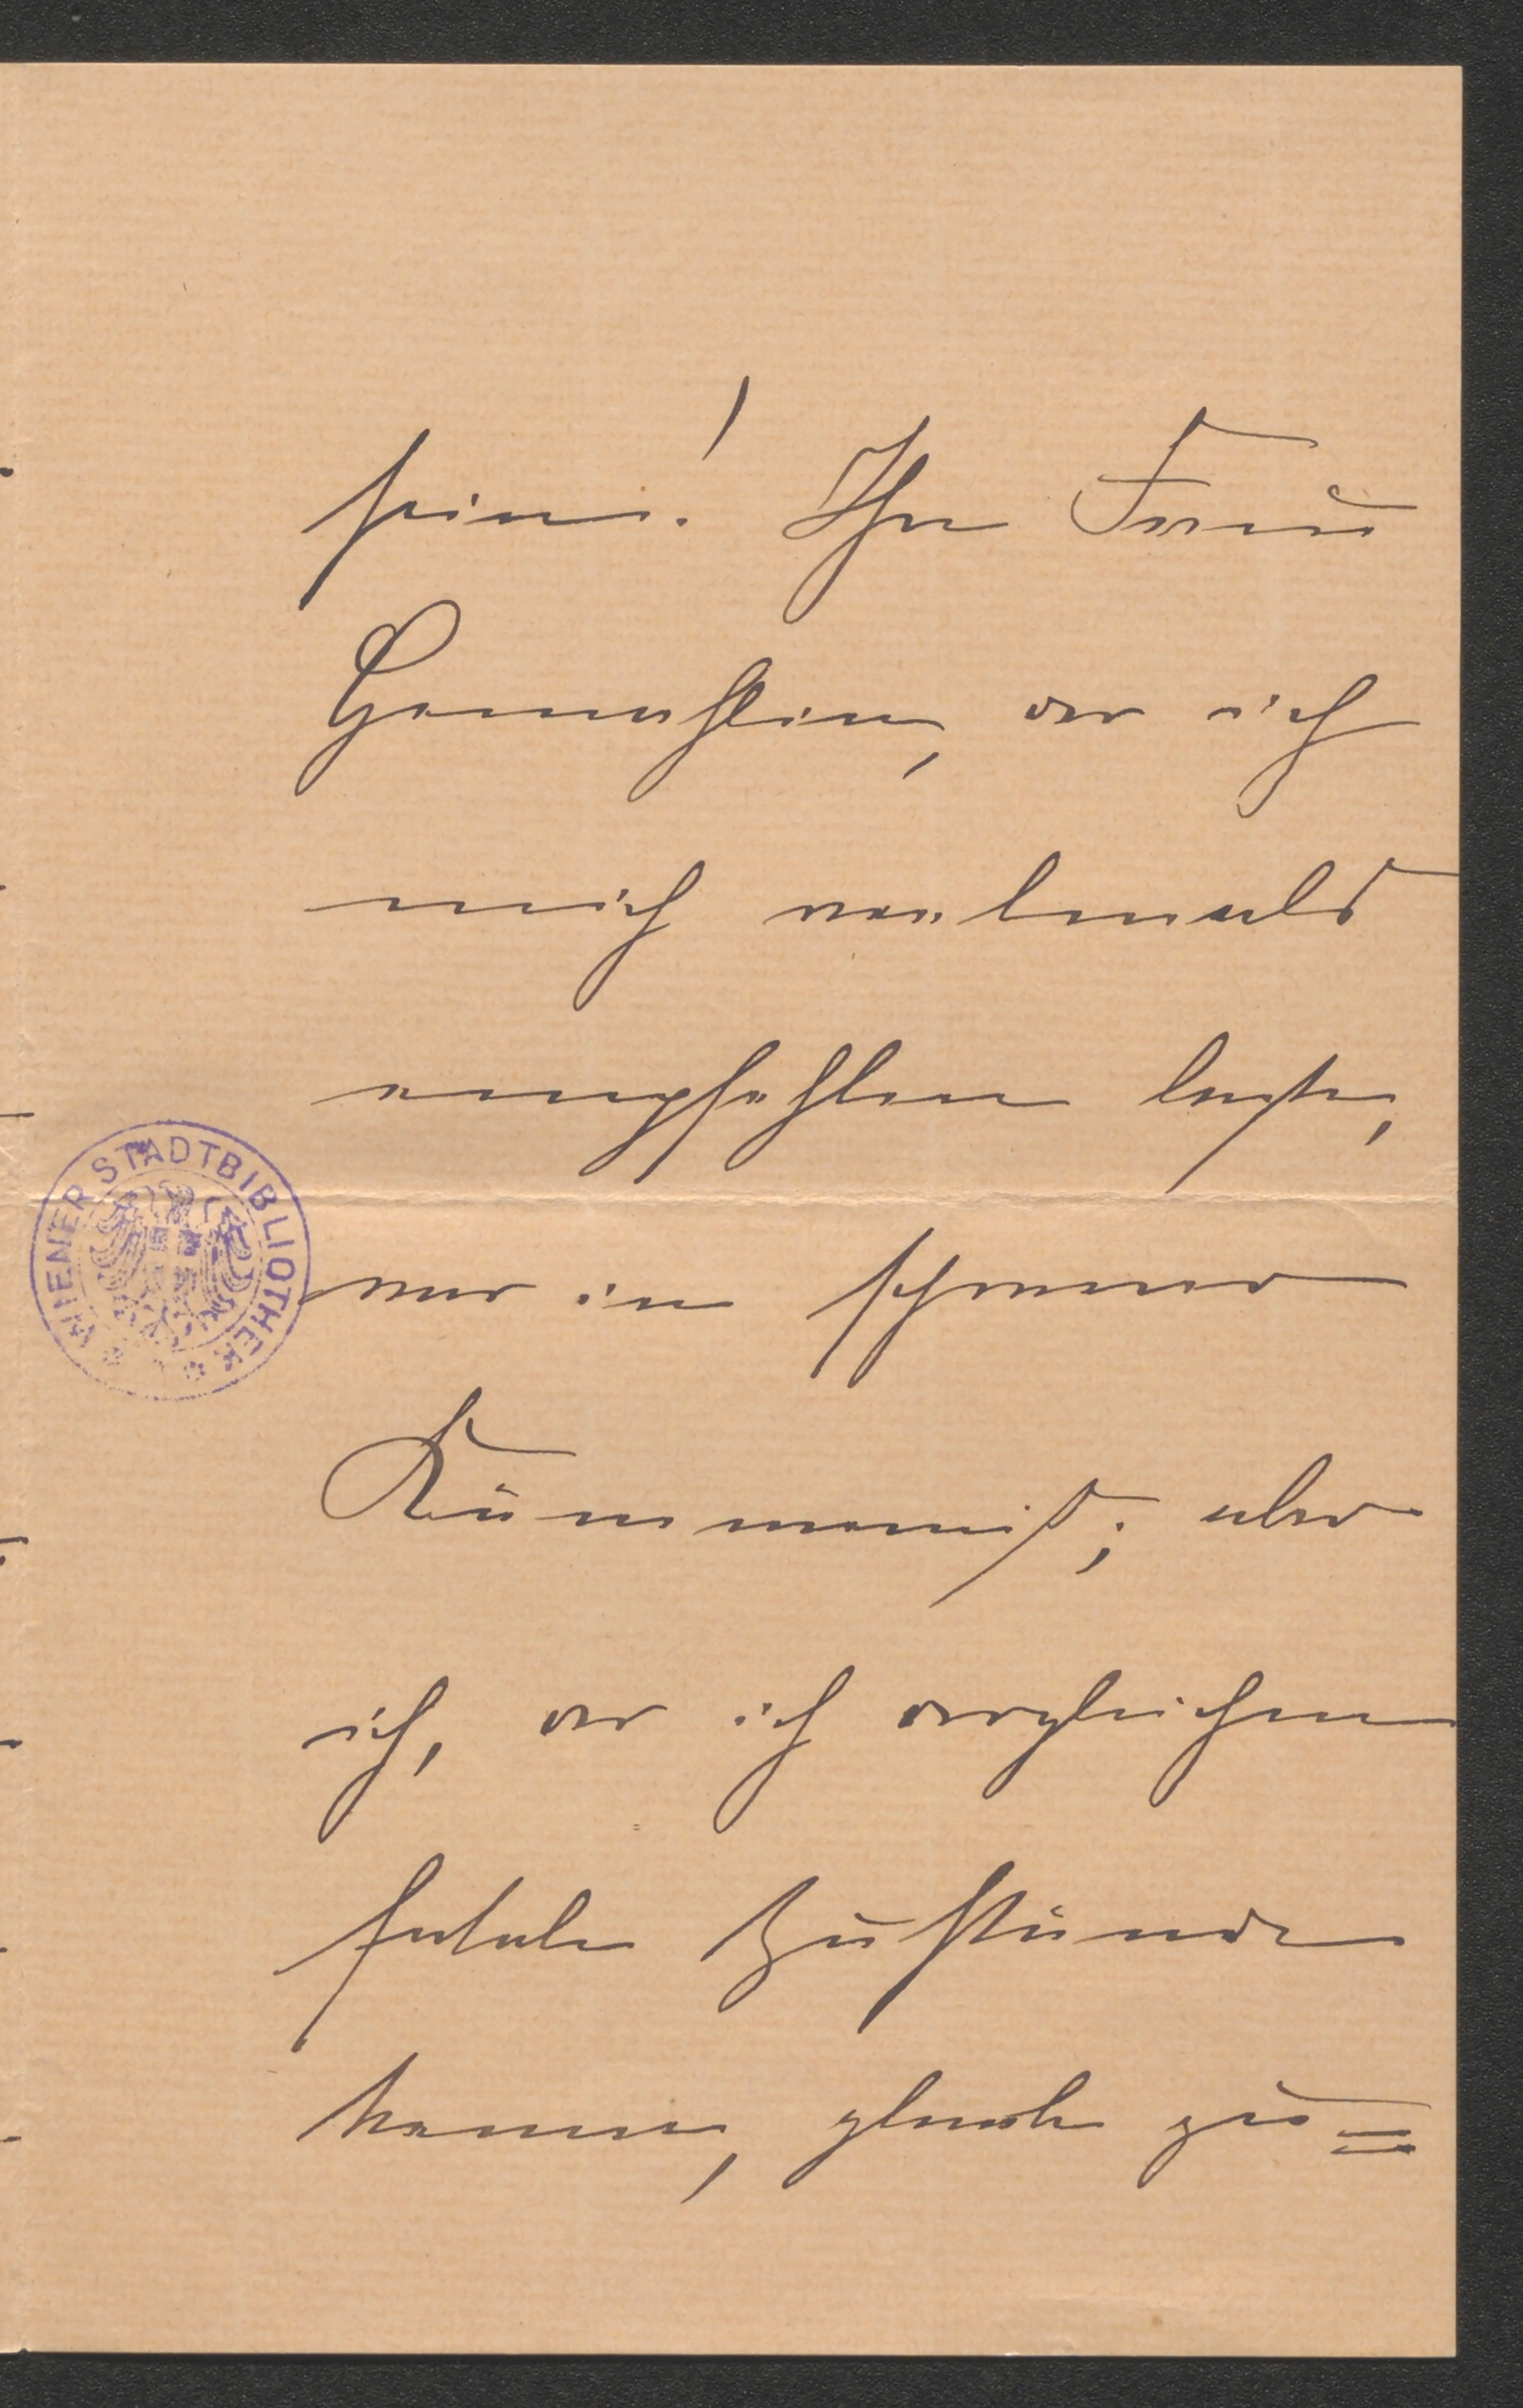 sein! Ihre Frau
Gemahlin, der ich
mich vielmals
empfehlen lasse,
war in schwerer
Kümmerniß; aber
ich, der ich dergleichen
fatale Zustände
kenne, glaube zu=
WIENER STADTBIBLIOTHEK